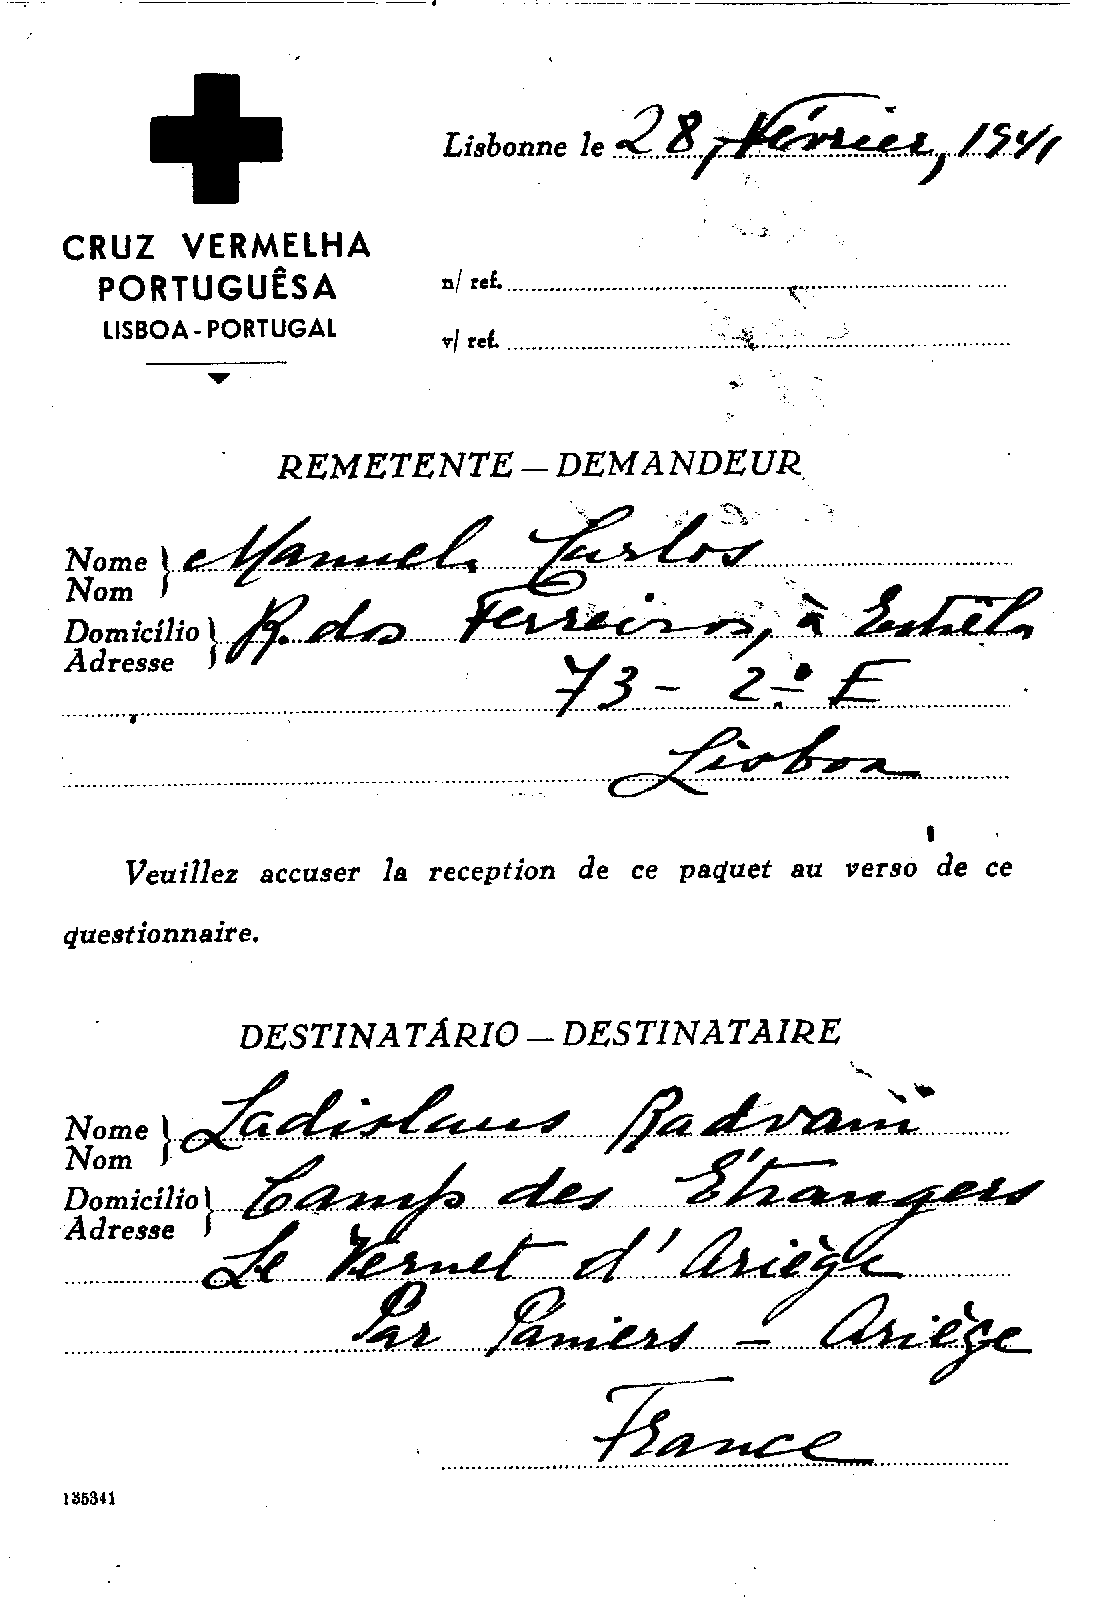 Lisbonne le 28, Février, 1941
CRUZ VERMELHA
PORTUGUÊSA
LISBOA-PORTUGAL
n/ ref.
v/ ref.
REMETENTE — DEMANDEUR
Nome Manuel Carlos
Nom
Domicílio R. dos Ferreiros, à Estrêla
Adresse
73 - 2º E
Lisboa
Veuillez accuser la reception de ce paquet au verso de ce
questionnaire.
DESTINATÁRIO — DESTINATAIRE
Nome Ladislaus Radvani
Nom
Domicílio Camp des Étrangers
Adresse
Le Vernet d'Ariège
Par Pamiers - Ariège
France
135341